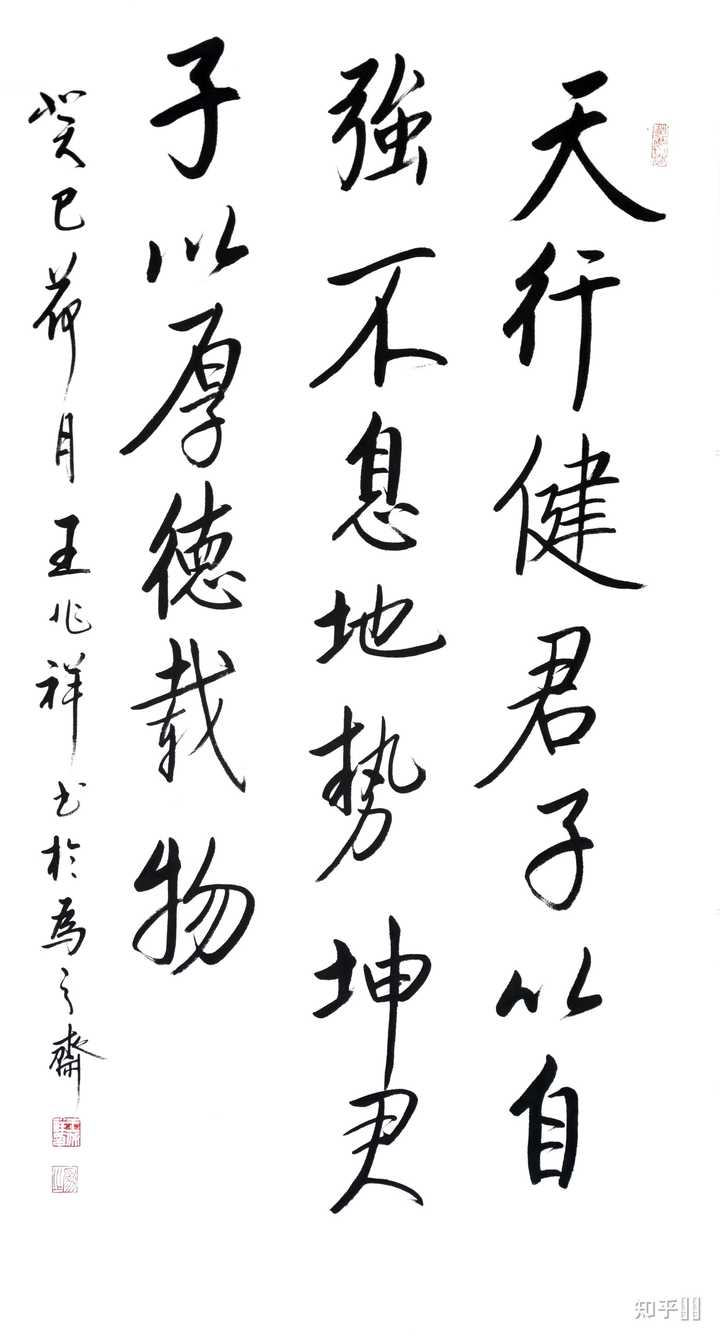 天行健君子以自
強不息地势坤君
子以厚德载物
癸巳荷月王兆祥书於為之齋
知乎